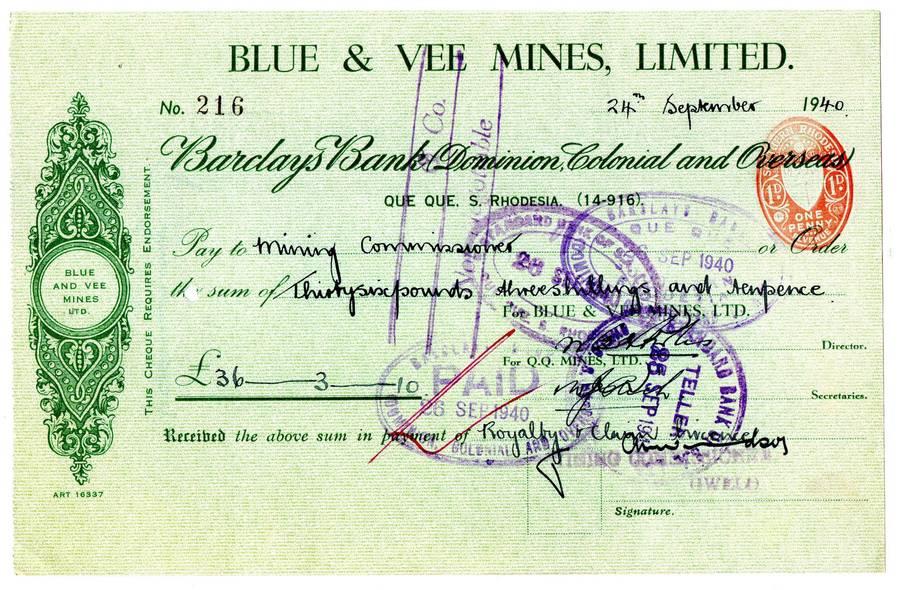 BLUE & VEE MINES, LIMITED.
No. 216
24th September 1940
Barclays Bank (Dominion, Colonial and Overseas)
QUE QUE, S. RHODESIA. (14-916).
Pay to Mining Commissioner or Order
the sum of Thirtysixpounds threeshillings and tenpence
For BLUE & VEE MINES, LTD.
Director.
For Q.Q. MINES, LTD.
£36 — 3 — 10
Secretaries.
Received the above sum in payment of Royalty &
Signature.
THIS CHEQUE REQUIRES ENDORSEMENT.
BLUE
AND VEE
MINES
LTD.
ART 16337
SOUTHERN RHODESIA
1D. 1D.
ONE
PENNY
& Co.
Not Negotiable
STANDARD BANK OF
BARCLAYS BANK
QUE QUE
SEP 1940
PAID
26 SEP 1940
COLONIAL AND
STANDARD BANK OF
TELLER
MINING COMMISSIONER
(GWELO)